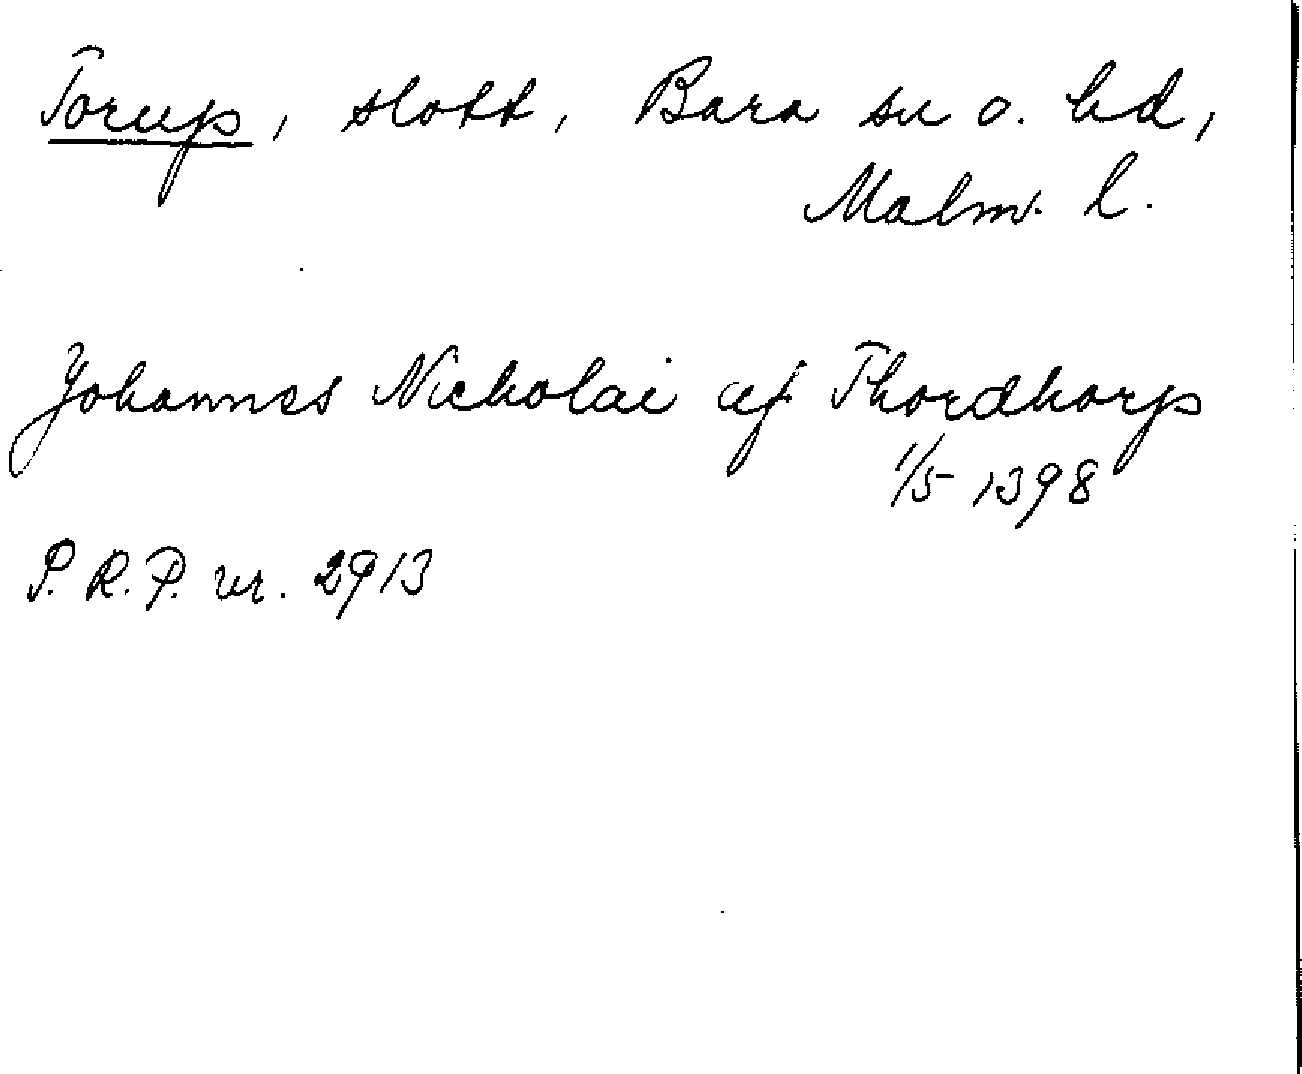 Torup, slott, Bara sn o. hd,
Malm. l.
Johannes Nickolai af Thordthorp
1/5 1398
P. R. P. nr. 2913